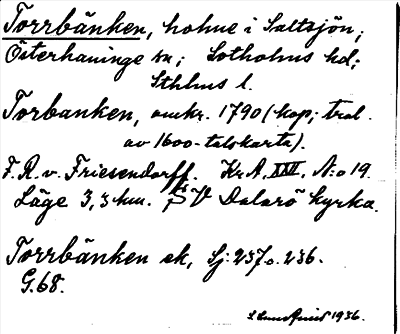 Torrbänken, holme i Saltsjön,
Österhaninge sn; Sotholms hd;
Sthlms l.
Torbanken, omkr. 1790 (kop; trol.
av 1600-talskarta).
F. R. v. Friesendorff. Kr. A, XXI, N:o 19.
Läge 3,3 km. SV Dalarö kyrka.
Torrbänken ek, Sj: 257 o. 236.
G. 68.
1936.